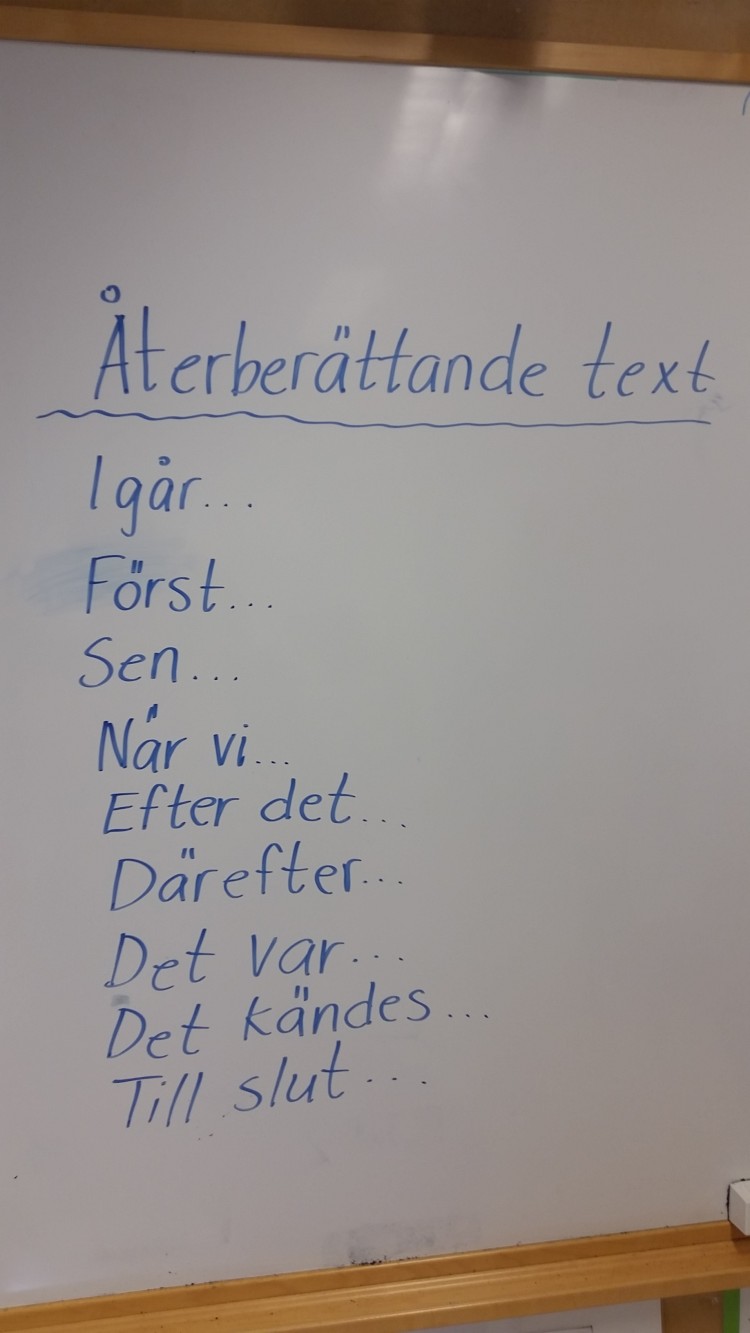 Återberättande text
Igår...
Först...
Sen...
När vi...
Efter det...
Därefter...
Det var...
Det kändes...
Till slut...